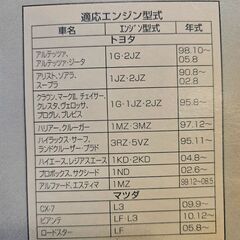 適応エンジン型式
車名 エンジン型式 年式
トヨタ
アルテッツァ、
アルテッツァ・ジータ 1G・2JZ 98.10~05.8
アリスト、ソアラ、
スープラ 1JZ・2JZ 90.8~02.8
クラウン、マークⅡ、チェイサー、
クレスタ、ヴェロッサ、
プログレ、ブレビス 1G・1JZ・2JZ 95.8~
ハリアー、クルーガー 1MZ・3MZ 97.12~
ハイラックス・サーフ、
ランドクルーザープラド 3RZ・5VZ 95.11~
ハイエース、レジアスエース 1KD・2KD 04.8~
プロボックス、サクシード 1ND 02.6~
アルファード、エスティマ 1MZ 99.12~08.5
マツダ
CX-7 L3 09.9~
ビアンテ LF・L3 10.12~
ロードスター LF 05.8~